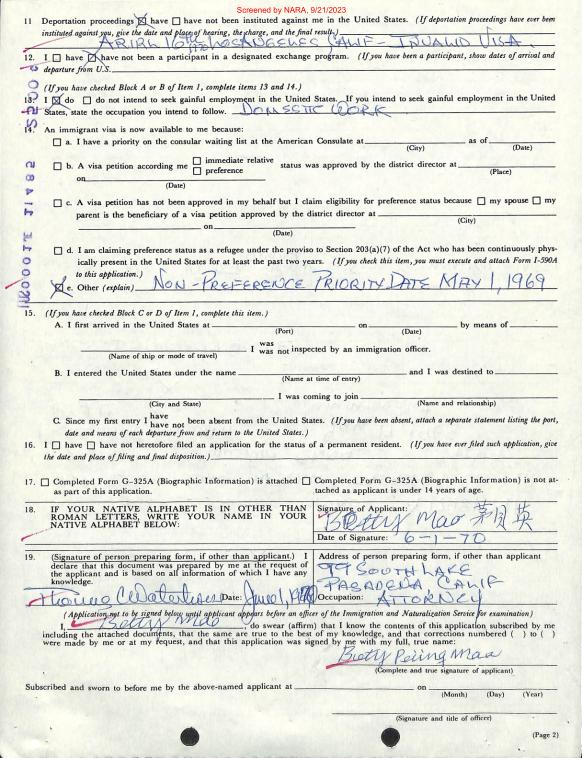 Screened by NARA, 9/21/2023
11 Deportation proceedings ☒ have ☐ have not been instituted against me in the United States. (If deportation proceedings have ever been
instituted against you, give the date and place of hearing, the charge, and the final result.)
LOS ANGELES CALIF - INVALID VISA
12. I ☐ have ☒ have not been a participant in a designated exchange program. (If you have been a participant, show dates of arrival and
departure from U.S.
(If you have checked Block A or B of Item 1, complete items 13 and 14.)
13. I ☒ do ☐ do not intend to seek gainful employment in the United States. If you intend to seek gainful employment in the United
States, state the occupation you intend to follow. DOMESTIC WORK
14. An immigrant visa is now available to me because:
☐ a. I have a priority on the consular waiting list at the American Consulate at as of
(City) (Date)
☐ b. A visa petition according me ☐ immediate relative ☐ preference status was approved by the district director at
(Place)
on
(Date)
☐ c. A visa petition has not been approved in my behalf but I claim eligibility for preference status because ☐ my spouse ☐ my
parent is the beneficiary of a visa petition approved by the district director at
(City)
on
(Date)
☐ d. I am claiming preference status as a refugee under the proviso to Section 203(a)(7) of the Act who has been continuously phys-
ically present in the United States for at least the past two years. (If you check this item, you must execute and attach Form I-590A
to this application.)
☒ e. Other (explain) NON-PREFERENCE PRIORITY DATE MAY 1, 1969
15. (If you have checked Block C or D of Item 1, complete this item.)
A. I first arrived in the United States at on by means of
(Port) (Date)
I was was not inspected by an immigration officer.
(Name of ship or mode of travel)
B. I entered the United States under the name and I was destined to
(Name at time of entry)
I was coming to join
(City and State) (Name and relationship)
C. Since my first entry I have have not been absent from the United States. (If you have been absent, attach a separate statement listing the port,
date and means of each departure from and return to the United States.)
16. I ☐ have ☐ have not heretofore filed an application for the status of a permanent resident. (If you have ever filed such application, give
the date and place of filing and final disposition.)
17. ☐ Completed Form G-325A (Biographic Information) is attached ☐ Completed Form G-325A (Biographic Information) is not at-
as part of this application. tached as applicant is under 14 years of age.
18. IF YOUR NATIVE ALPHABET IS IN OTHER THAN
ROMAN LETTERS, WRITE YOUR NAME IN YOUR
NATIVE ALPHABET BELOW:
Signature of Applicant:
Betty Mao
Date of Signature: 6-1-70
19. (Signature of person preparing form, if other than applicant.) I
declare that this document was prepared by me at the request of
the applicant and is based on all information of which I have any
knowledge.
Date: June 1, 1970
Address of person preparing form, if other than applicant
99 SOUTH LAKE
PASADENA CALIF
Occupation: ATTORNEY
(Application not to be signed below until applicant appears before an officer of the Immigration and Naturalization Service for examination)
I, Betty Mao, do swear (affirm) that I know the contents of this application subscribed by me
including the attached documents, that the same are true to the best of my knowledge, and that corrections numbered ( ) to ( )
were made by me or at my request, and that this application was signed by me with my full, true name:
Betty Peiing Mao
(Complete and true signature of applicant)
Subscribed and sworn to before me by the above-named applicant at on
(Month) (Day) (Year)
(Signature and title of officer)
(Page 2)